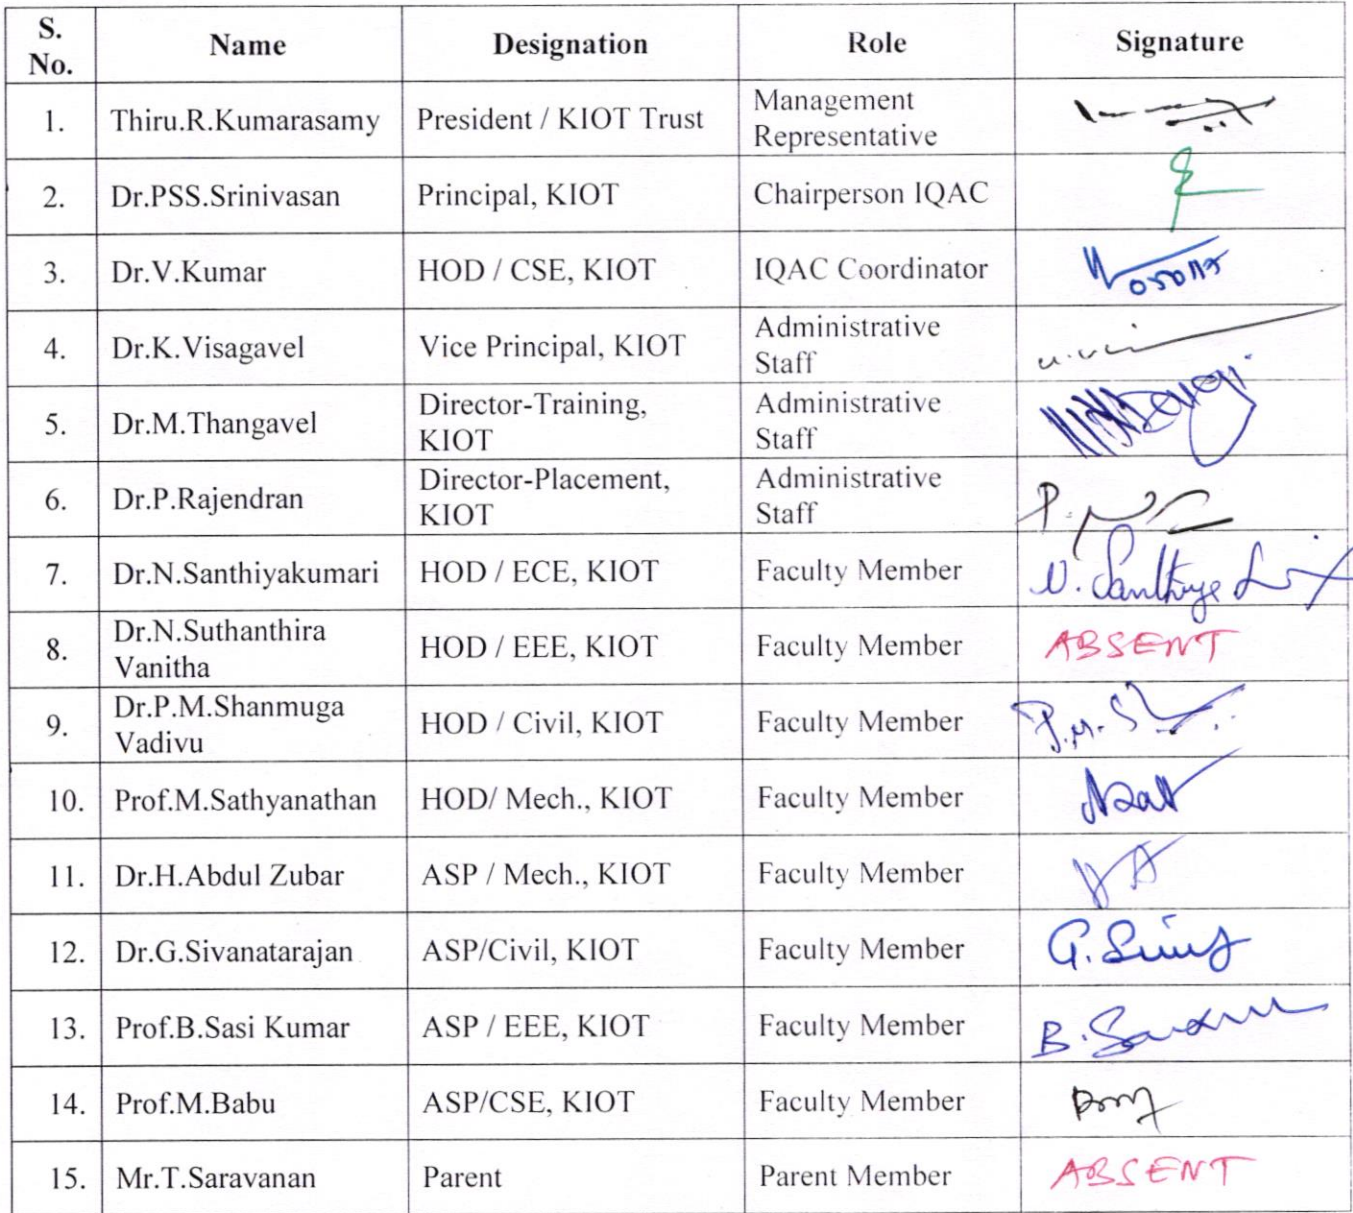 S. No. Name Designation Role Signature
1. Thiru.R.Kumarasamy President / KIOT Trust Management Representative
2. Dr.PSS.Srinivasan Principal, KIOT Chairperson IQAC
3. Dr.V.Kumar HOD / CSE, KIOT IQAC Coordinator
4. Dr.K.Visagavel Vice Principal, KIOT Administrative Staff
5. Dr.M.Thangavel Director-Training, KIOT Administrative Staff
6. Dr.P.Rajendran Director-Placement, KIOT Administrative Staff
7. Dr.N.Santhiyakumari HOD / ECE, KIOT Faculty Member
8. Dr.N.Suthanthira Vanitha HOD / EEE, KIOT Faculty Member ABSENT
9. Dr.P.M.Shanmuga Vadivu HOD / Civil, KIOT Faculty Member
10. Prof.M.Sathyanathan HOD/ Mech., KIOT Faculty Member
11. Dr.H.Abdul Zubar ASP / Mech., KIOT Faculty Member
12. Dr.G.Sivanatarajan ASP/Civil, KIOT Faculty Member
13. Prof.B.Sasi Kumar ASP / EEE, KIOT Faculty Member
14. Prof.M.Babu ASP/CSE, KIOT Faculty Member
15. Mr.T.Saravanan Parent Parent Member ABSENT